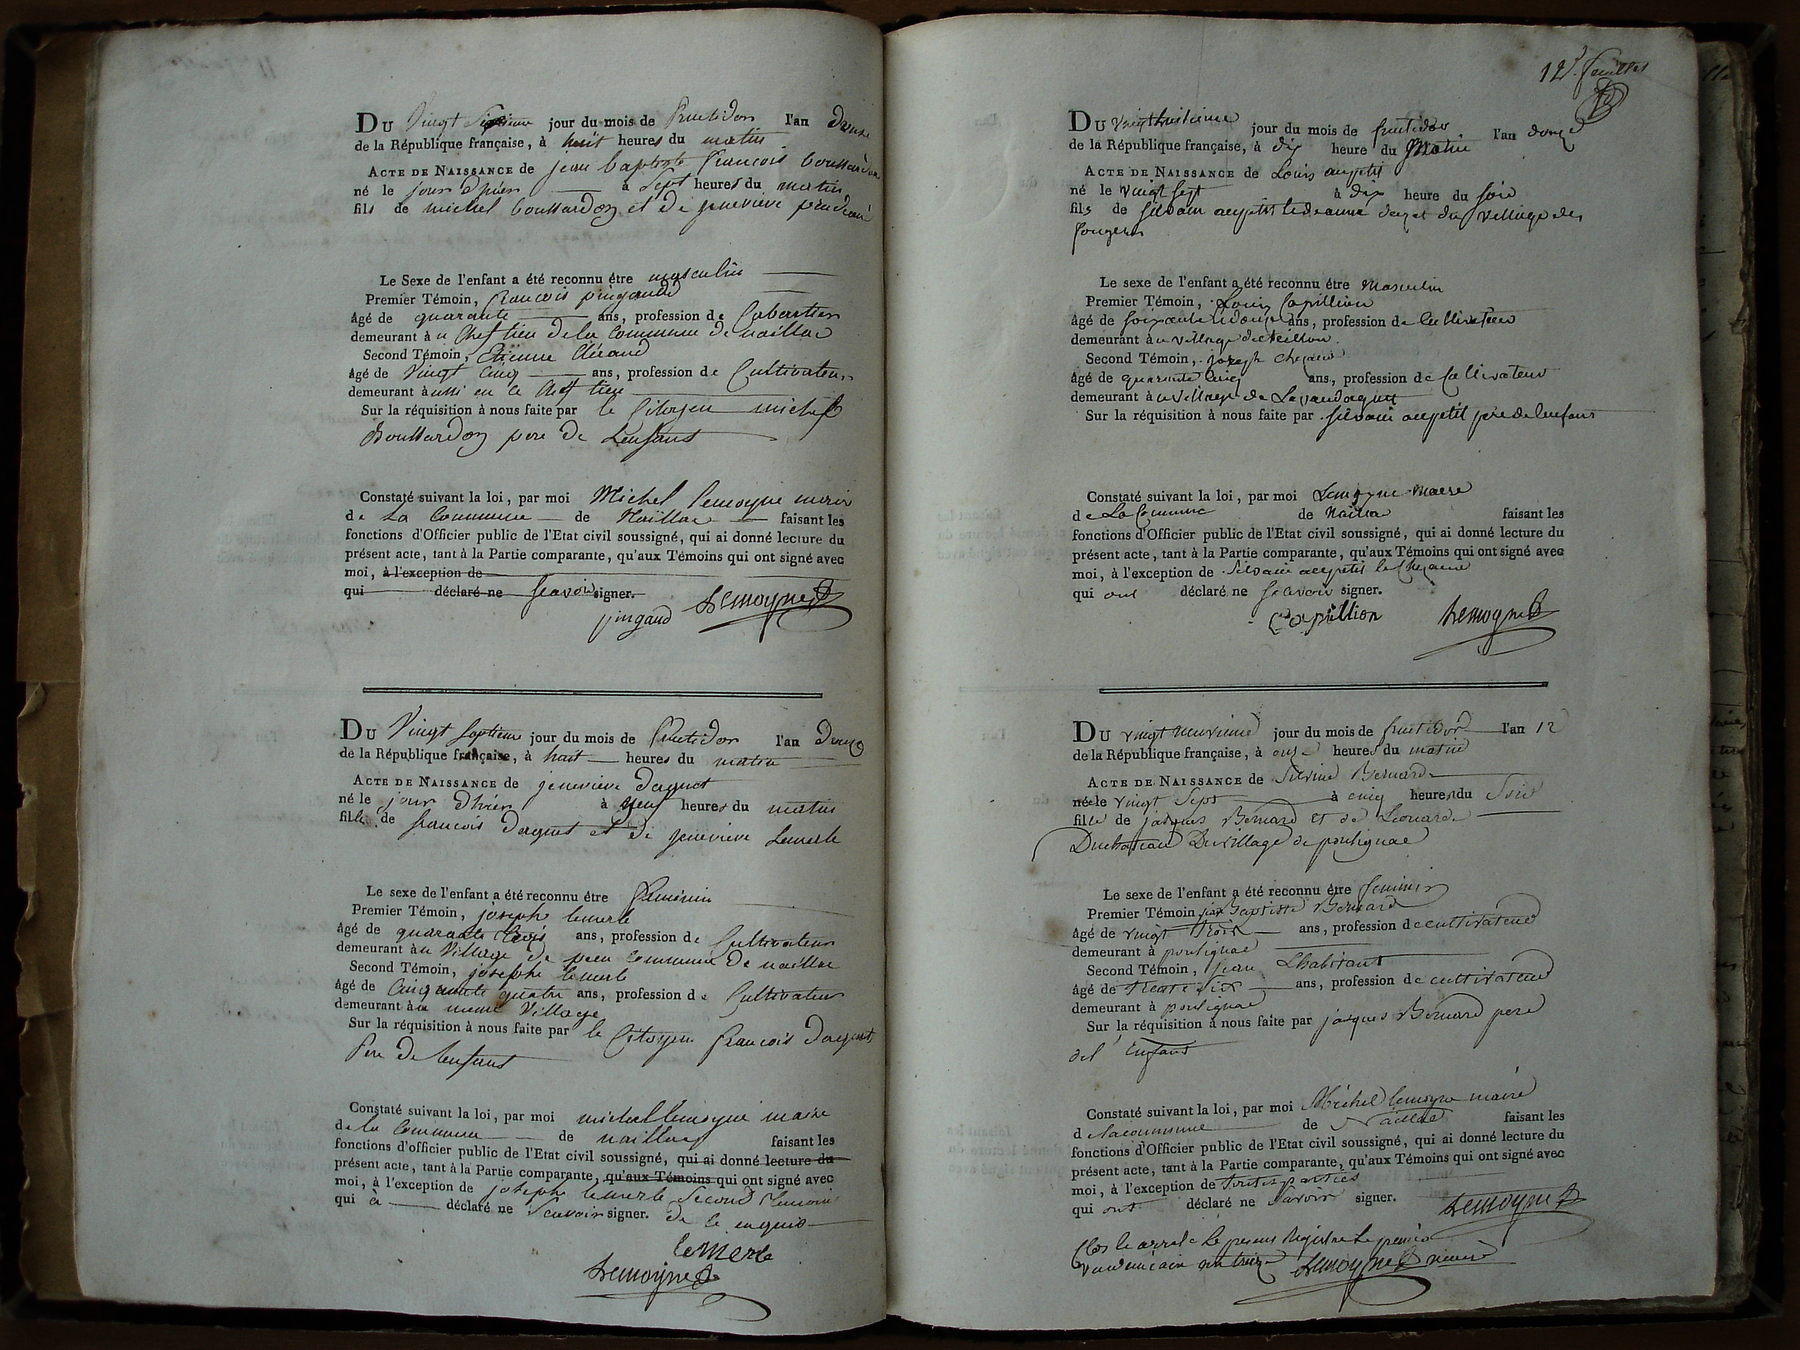 DU Vingt Septieme jour du mois de fructidor l'an douze
de la République française, à huit heures du matin
ACTE DE NAISSANCE de jean baptiste francois boussardon
né le jour dhier à Sept heures du matin
fils de michel boussardon et de genevieve
Le Sexe de l'enfant a été reconnu être masculin
Premier Témoin, francois pingaud
âgé de quarante ans, profession de Cabartier
demeurant à u Chef lieu de la Commune de naillac
Second Témoin, Etienne
âgé de Vingt Cinq ans, profession de Cultivateur
demeurant à ussi en le chef lieu
Sur la réquisition à nous faite par le Citoyen michel
Boussardon pere de Lenfant
Constaté suivant la loi, par moi Michel lemoyne maire
de La Commune de Naillac faisant les
fonctions d'Officier public de l'Etat civil soussigné, qui ai donné lecture du
présent acte, tant à la Partie comparante, qu'aux Témoins qui ont signé avec
moi, à l'exception de
qui déclaré ne Scavoir signer.
pingaud Lemoyne
DU Vingt Septieme jour du mois de fructidor l'an douze
de la République française, à huit heures du matin
ACTE DE NAISSANCE de genevieve daguet
né le jour dhier à heures du matin
fille de francois daguet et de genevieve Lemerle
Le sexe de l'enfant a été reconnu être feminin
Premier Témoin, joseph lemerle
âgé de quarante trois ans, profession de Cultivateur
demeurant à u Village de commune de naillac
Second Témoin, josephe lemerle
âgé de Cinquante quatre ans, profession de Cultivateur
demeurant à u meme Village
Sur la réquisition à nous faite par le Citoyen francois daguet
Pere de lenfant
Constaté suivant la loi, par moi michel lemoyne maire
de la Commune de naillac faisant les
fonctions d'officier public de l'Etat civil soussigné, qui ai donné lecture du
présent acte, tant à la Partie comparante, qu'aux Témoins qui ont signé avec
moi, à l'exception de josephe lemerle Second temoin
qui à déclaré ne Scavoir signer. de ce enquis
lemerle
Lemoyne
12e feuillet
DU vingt huitieme jour du mois de fructidor l'an douze
de la République française, à dix heure du Matin
ACTE DE NAISSANCE de Louis aupetit
né le vingt sept à dix heure du soir
fils de silvain aupetit et de anne daguet du village des
fougeres
Le sexe de l'enfant a été reconnu être Masculin
Premier Témoin, Louis Capillion
âgé de soixante et douze ans, profession de Cultivateur
demeurant à u village
Second Témoin, jozeph
âgé de quarante Cinq ans, profession de Cultivateur
demeurant à u village de Lavaudaguet
Sur la réquisition à nous faite par silvain aupetit pere de lenfant
Constaté suivant la loi, par moi Lemoyne Maere
de La Commune de Nailla faisant les
fonctions d'Officier public de l'Etat civil soussigné, qui ai donné lecture du
présent acte, tant à la Partie comparante, qu'aux Témoins qui ont signé avec
moi, à l'exception de Silvain aupetit
qui ont déclaré ne scavoir signer.
Capillion Lemoyne
DU vingt neuvieme jour du mois de fructidor l'an 12
de la République française, à onze heures du matin
ACTE DE NAISSANCE de Silvine Bernard
née le vingt Sept à cinq heures du Soir
fille de jacques Bernard et de Léonarde
Duchateau Du village de poulignac
Le sexe de l'enfant a été reconnu être feminin
Premier Témoin jean Baptiste Bernard
âgé de vingt trois ans, profession de cultivateur
demeurant à poulignac
Second Témoin, jean Lhabitant
âgé de trente Six ans, profession de cultivateur
demeurant à poulignac
Sur la réquisition à nous faite par jacques Bernard pere
del' Enfant
Constaté suivant la loi, par moi Michel lemoyne maire
de lacommune de Naillac faisant les
fonctions d'Officier public de l'Etat civil soussigné, qui ai donné lecture du
présent acte, tant à la Partie comparante, qu'aux Témoins qui ont signé avec
moi, à l'exception de toutes parties
qui ont déclaré ne Savoir signer. Lemoyne
Clos le present Registre Le premier
vandemiaire an treize Lemoyne maire